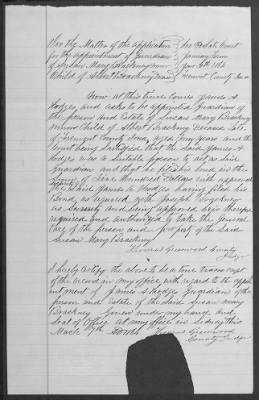 In the Matter of the Application In Probate Court
for the appointment of Guardian January Term
of Susan Mary Brackney minor Jan 6th 186
Child of Albert Brackney Fremont County Iowa
Now at this time comes James A
Hodges, and asks to be appointed Guardian of
the person and Estate of Susan Mary Brackney
minor Child of Albert Brackney Deceased late
of Fremont County Iowa, aged years and the
Court being satisfied that the said James A
Hodges was a suitable person to act as said
Guardian and that he file his bond in the
Sum of Hundred Dollars with approved
the said James A Hodges having filed his
Bond, as required with Joseph
as Security and being approved was therefore
required and authorized to take the general
Care of the person and property of the said
Susan Mary Brackney
Thomas Greenwood County
Judge
I hereby Certify the above to be a true transcript
of the record in my office with regard to the appoint
ment of James A Hodges Guardian of the
person and Estate of the said Susan Mary
Brackney Given under my hand and
Seal of Office at my office in Sidney this
March 7th
Thomas Greenwood
County Judge